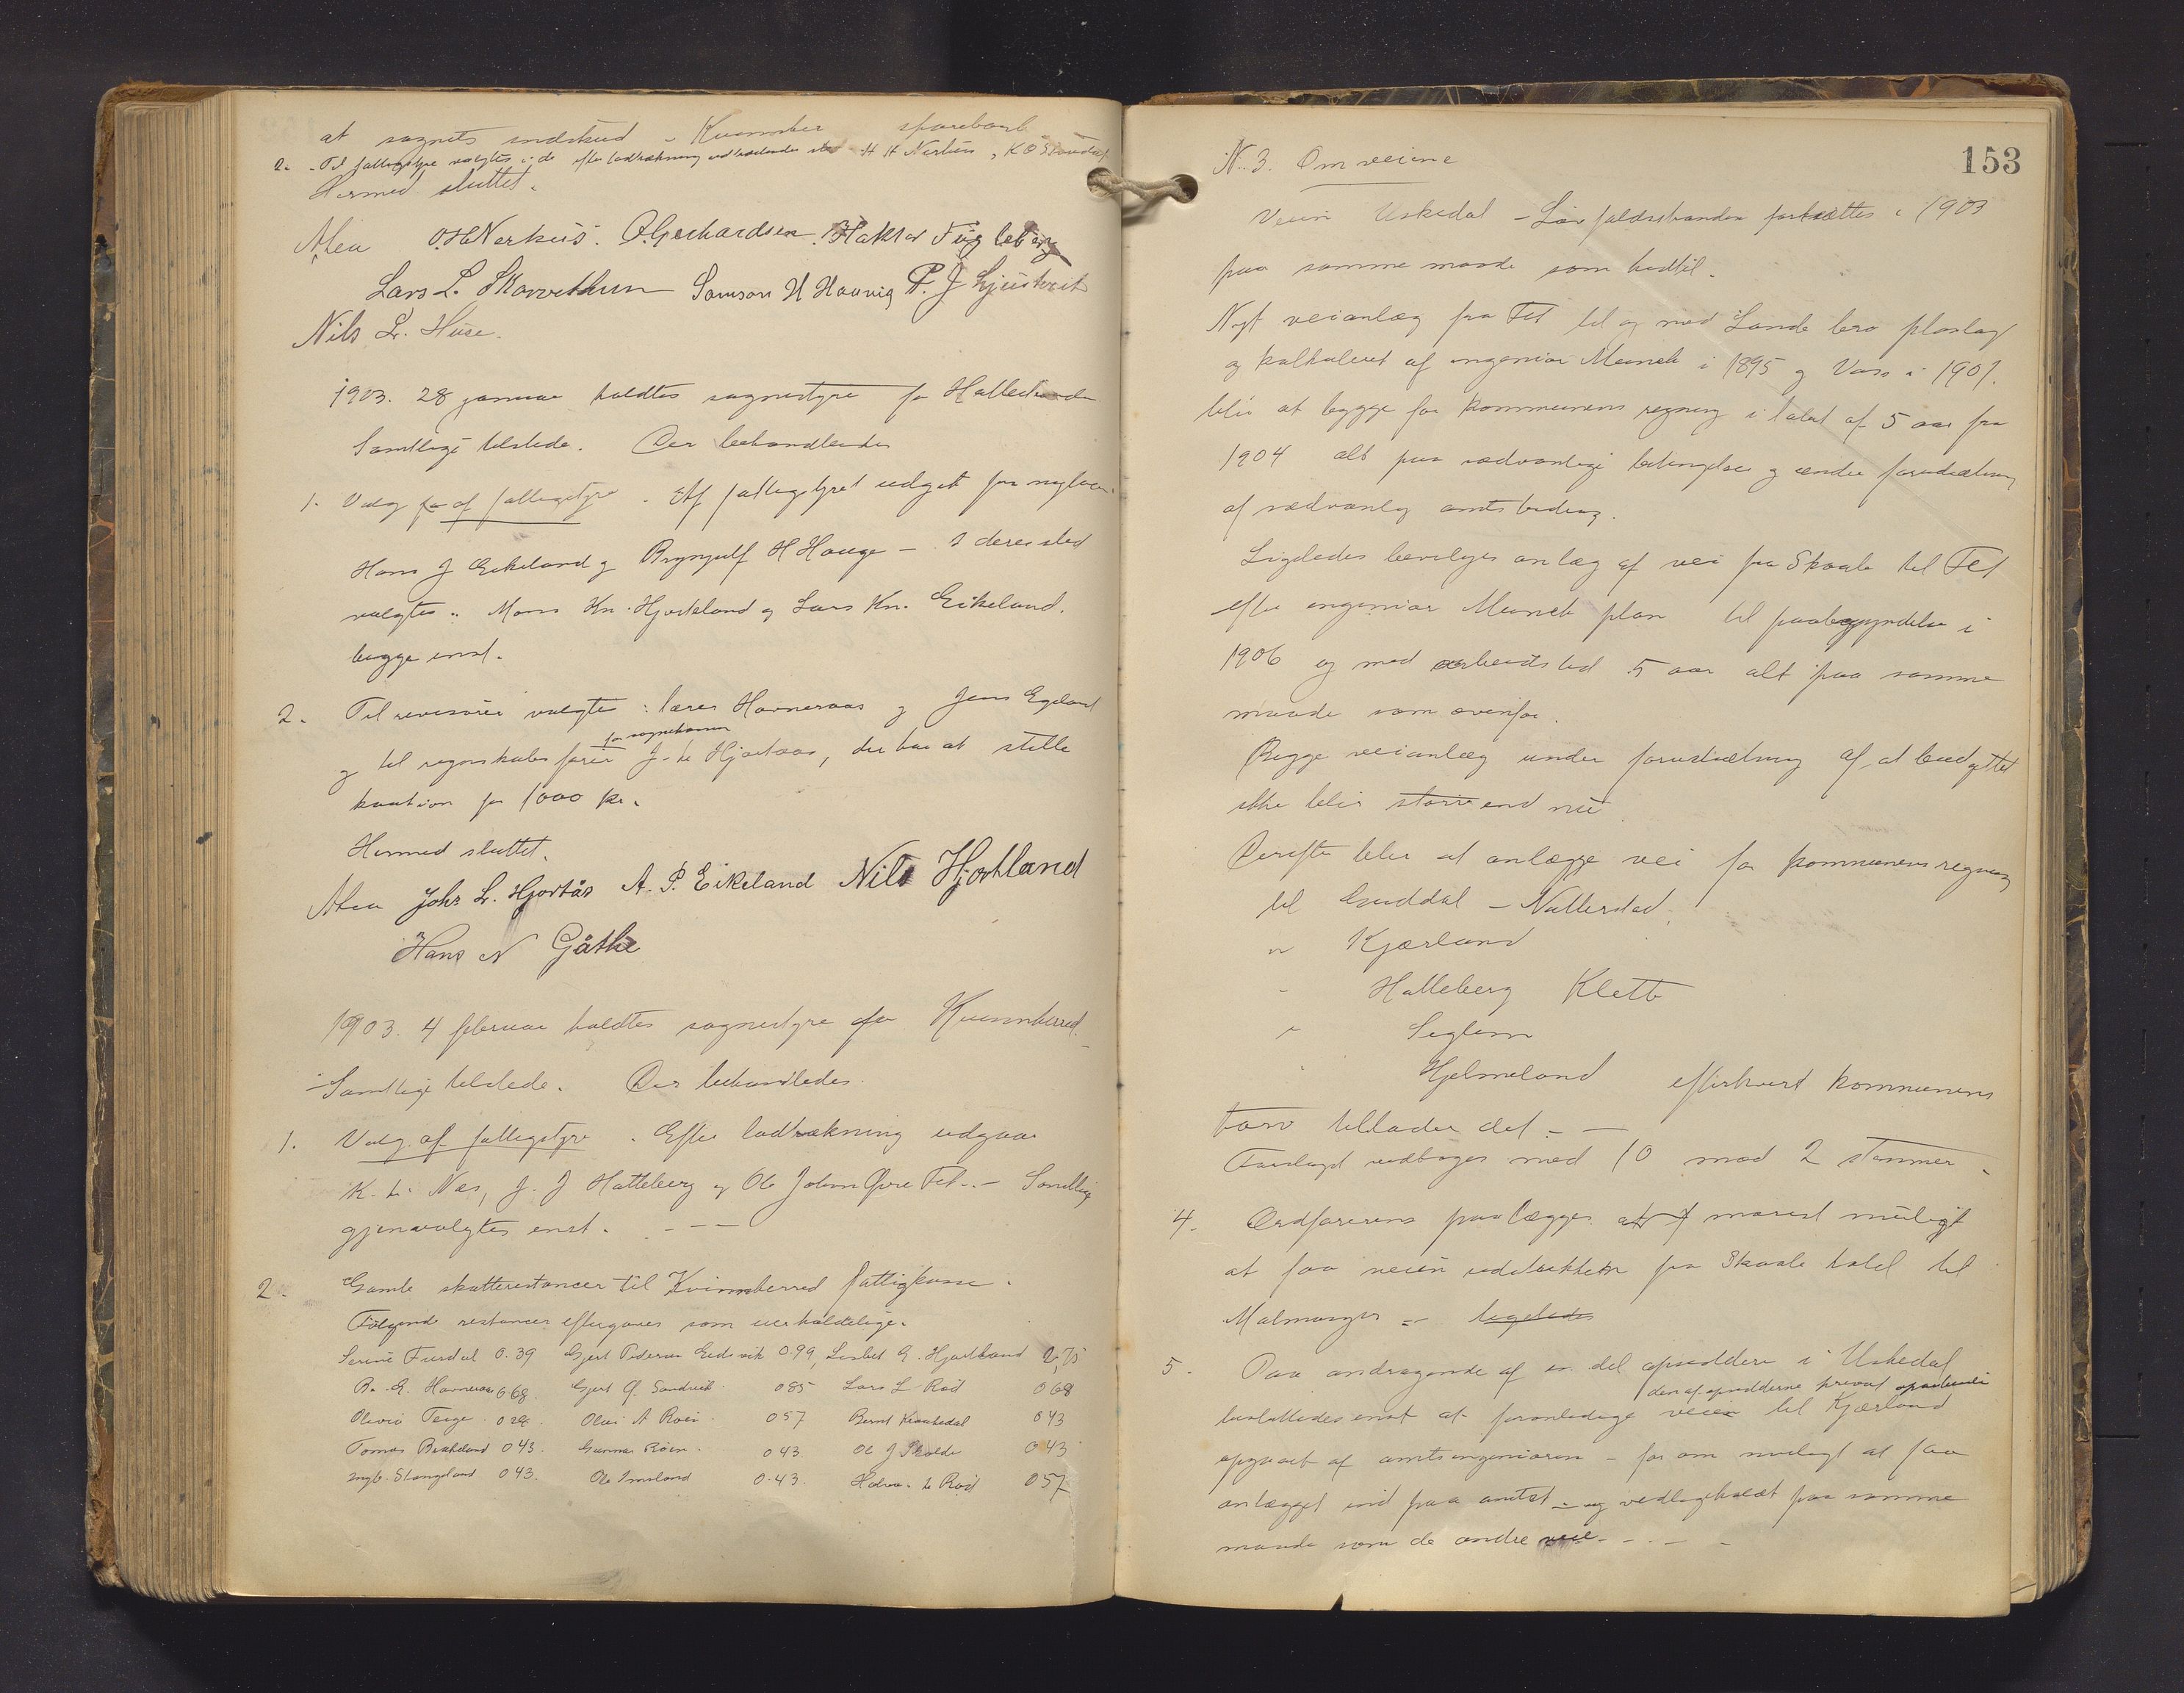 at sognets indskud i Kvinnher sparebank
2. Til fattigstyre valgtes i de efter lodtrækning udtrædendes sted H H Nerhus, K O Sandal
Hermed sluttet.
Alen O.H.Nerhus. O.Gerhardsen. Haktor Fugleberg
Lars L. Skorvethun Samson H Haavig P. J Ljustveit
Nils L. Huse.
1903. 28 januar holdtes sognestyre for
Samtlige tilstede. Der behandledes
1. Valg for af fattigstyre. Af fattigstyret udgik
Hans J Eikeland og Brynjulf H Hauge – I deres sted
valgtes: Mons Kn. Hjorteland og Lars Kn. Eikeland.
begge enst.
2. Til revisorer valgtes: lærer Havneraas og Jens Egeland
for sognekassen
og til regnskabsfører J. L Hjortaas, der har at stille
kaution for 1000 kr.
Hermed sluttet.
Alen Johs L. Hjortås A. P. Eikeland Nils Hjortland
Hans N Gåthe
1903. 4 februar holdtes sognestyre for Kvinnherred.
Samtlige tilstede. Der behandledes.
1. Valg af fattigstyre. Efter lodtrækning udgaar
K. L. Næs, J. J Hatteberg og Ole Johns Øvre Fet. – Samtlige
gjenvalgtes enst. – – –
2. Gamle skatterestancer til Kvinnherred fattigkasse.
Følgende restancer eftergives som uerholdelige.
Serine Fursdal 0.39 Gjert Pedersen Eidsvik 0.99, Lisbet G. Hjortland 2,75
B. E. Havneraas 668. Gjert G. Sandvik 085 Lars L Rød 068
Olivia Teige 028. Olai A Røen 057 Bernt 043
Tomas 043. Gunnar Røen 043 Ole J Skolde 043
Ingb. Stangeland 043. Ole Imsland 0.43. L Rød 057
153
N. 3. Om veiene
Veien Uskedal – Løvfaldsstranden fortsættes i 1903
paa samme maade som hidtil.
Nyt veianlæg fra Fet til og med Sande bro planlagt
og kalkuleret af ingeniør Munch i 1895 og Vass i 1901.
blir at bygge for kommunens regning i løbet af 5 aar fra
1904 alt paa sædvanlige betingelser og under forudsætning
af sædvanlig amtsbidrag.
Ligeledes bevilges anlæg af vei fra Skaale til Fet
efter ingeniør Munch plan til paabegyndelse i
1906 og med arbeidstid 5 aar alt paa samme
maade som ovenfor.
Begge veianlæg under forudsætning af, at budgettet
ikke blir større end nu.
Derefter blir at anlægge vei for kommunens regning
til Guddal – Natterstad
" Kjærland
" Hatteberg Klette
" Seglem
" Hjelmeland efterhvert kommunens
tarv tillader det. – –
Forslaget vedtoges med 10 mod 2 stemmer.
4. Ordføreren paalægges at snarest muligt
at faa veien udstukket fra Skaale hotel til
Malmanger – ligeledes
5. Paa andragende af en del opsiddere i Uskedal
den af opsidderne krevet
besluttedes enst at foranledige veien til Kjærland
opgaaet af amtsingeniøren – for om muligt at faa
anlægget ind paa amtet – og vedligeholdt paa samme
maade som de andre veie – – – –